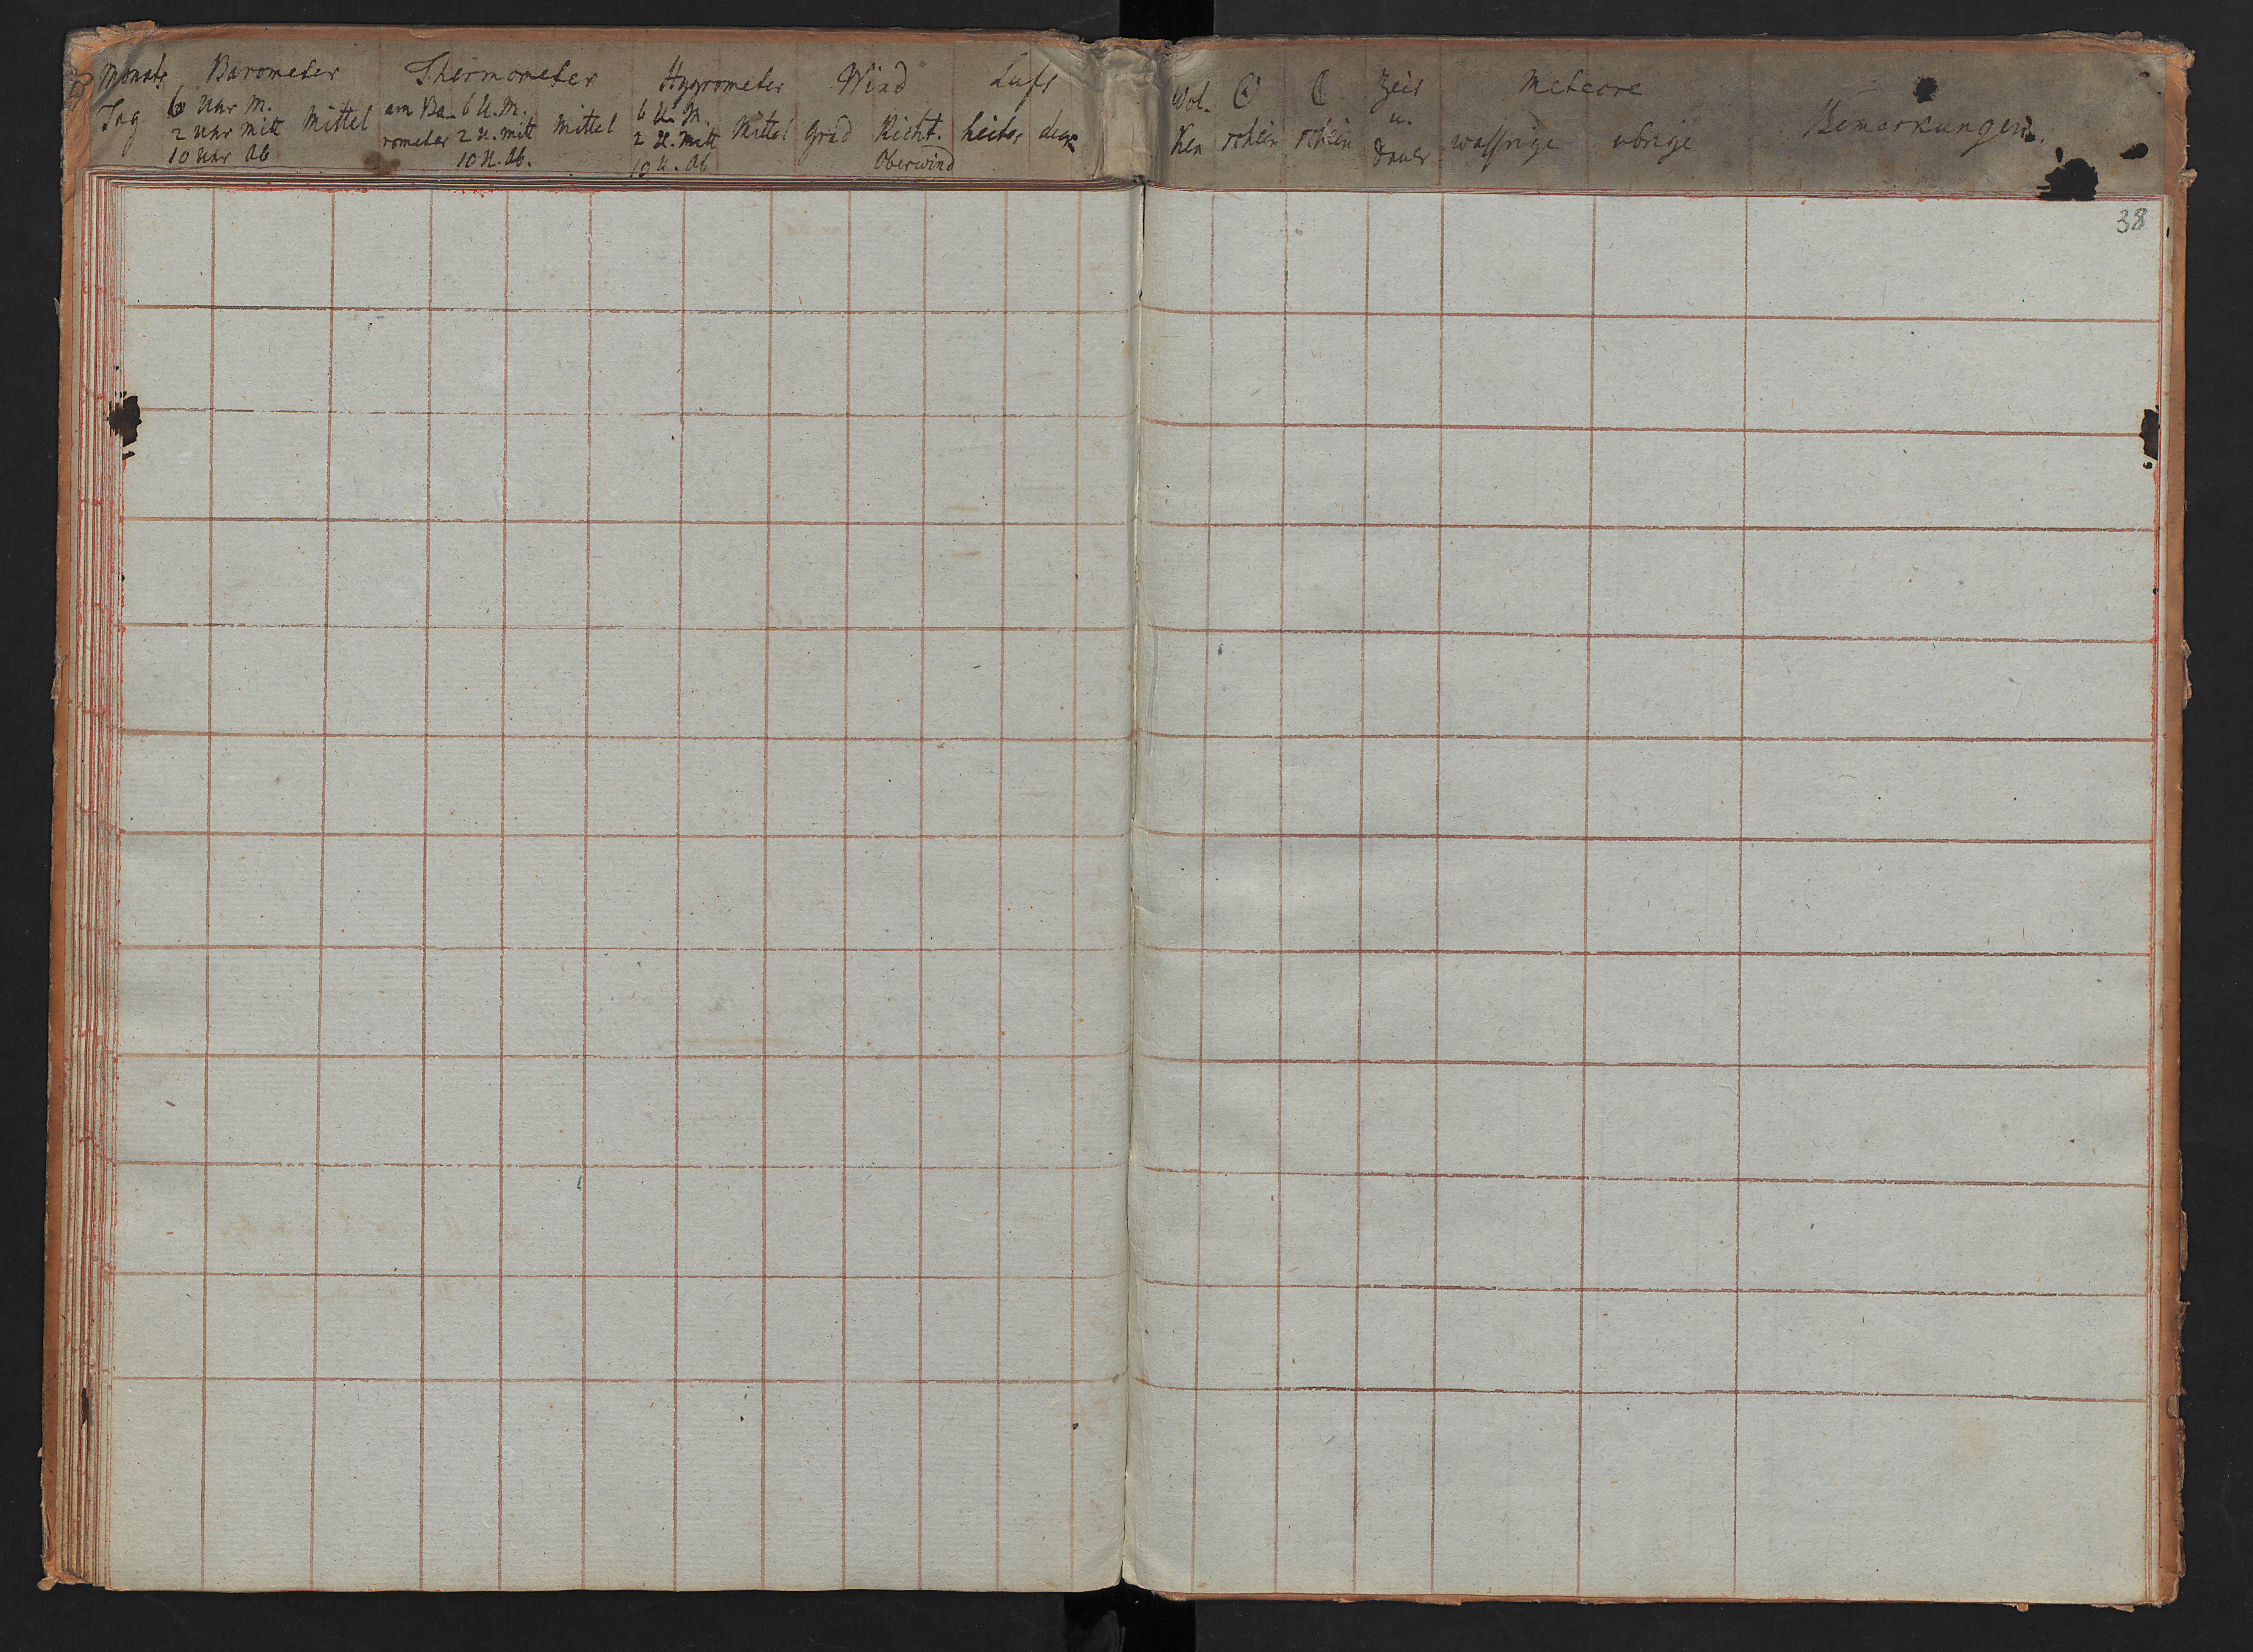 Monats Barometer Thermometer Hygrometer Wind Luft
Tag 6 Uhr M. am Ba- 6 U. M. 6 U. M.
2 Uhr Mitt Mittel rometer 2 U. Mitt Mittel 2 U. Mitt Mittel Grad Richt. heiter
10 Uhr Ab 10 U. Ab. 10 U. Ab Oberwind
Wol- ☉ ☾ Zeit Meteore
ken schein schein u. wassrige ubrige Bemerkungen.
Dauer
38